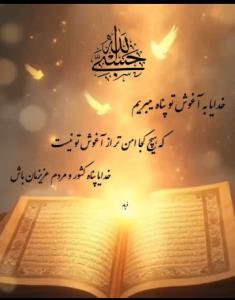 حسبی الله
خدایا به آغوش تو پناه میبریم
که هیچ کجا امن تر از آغوش تو نیست
خدایا پناه کشور و مردم عزیزمان باش